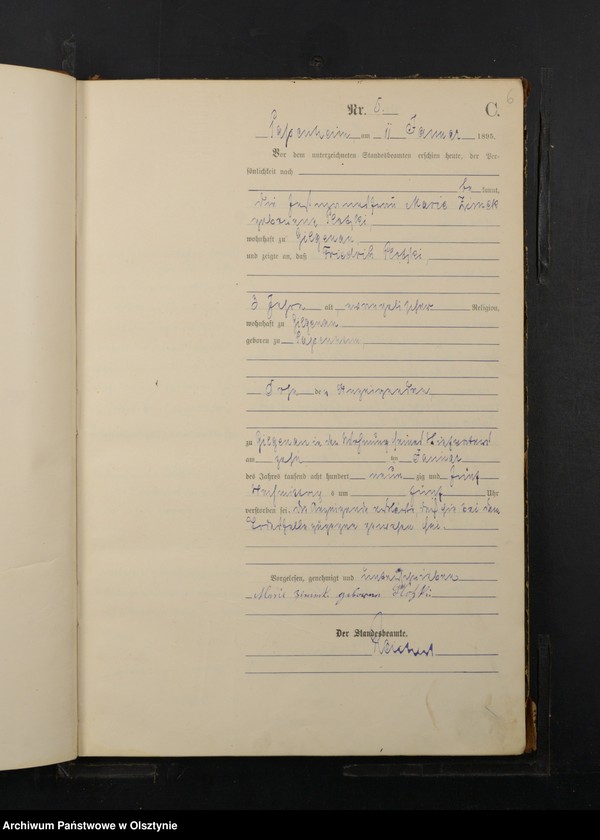 6
Nr. 5. C.
am 11 Januar 1895.
Vor dem unterzeichneten Standesbeamten erschien heute, der Per-
sönlichkeit nach
be kannt,
die Marie
geborene
wohnhaft zu Gilgenau
und zeigte an, daß Friedrich
3 Jahre alt evangelischer Religion,
wohnhaft zu Gilgenau
geboren zu
Sohn de r Anzeigenden
zu Gilgenau in der Wohnung seines
am zehn ten Januar
des Jahres tausend acht hundert neun zig und fünf
Nachmittag s um fünf Uhr
verstorben sei. Die Anzeigende erklärte, daß sie bei dem
Todesfalle zugegen gewesen sei.
Vorgelesen, genehmigt und unterschrieben
Marie geborene
Der Standesbeamte.
Archiwum Państwowe w Olsztynie